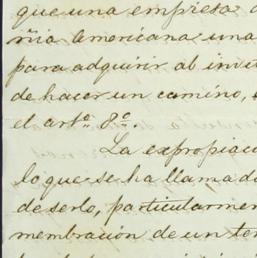 que una empresa
ñia Americana una
para adquirir al
de hacer un camino,
el arto. 8o.
La expropiac
lo que se ha llamado
de serlo, particularmen
membrasion de un te